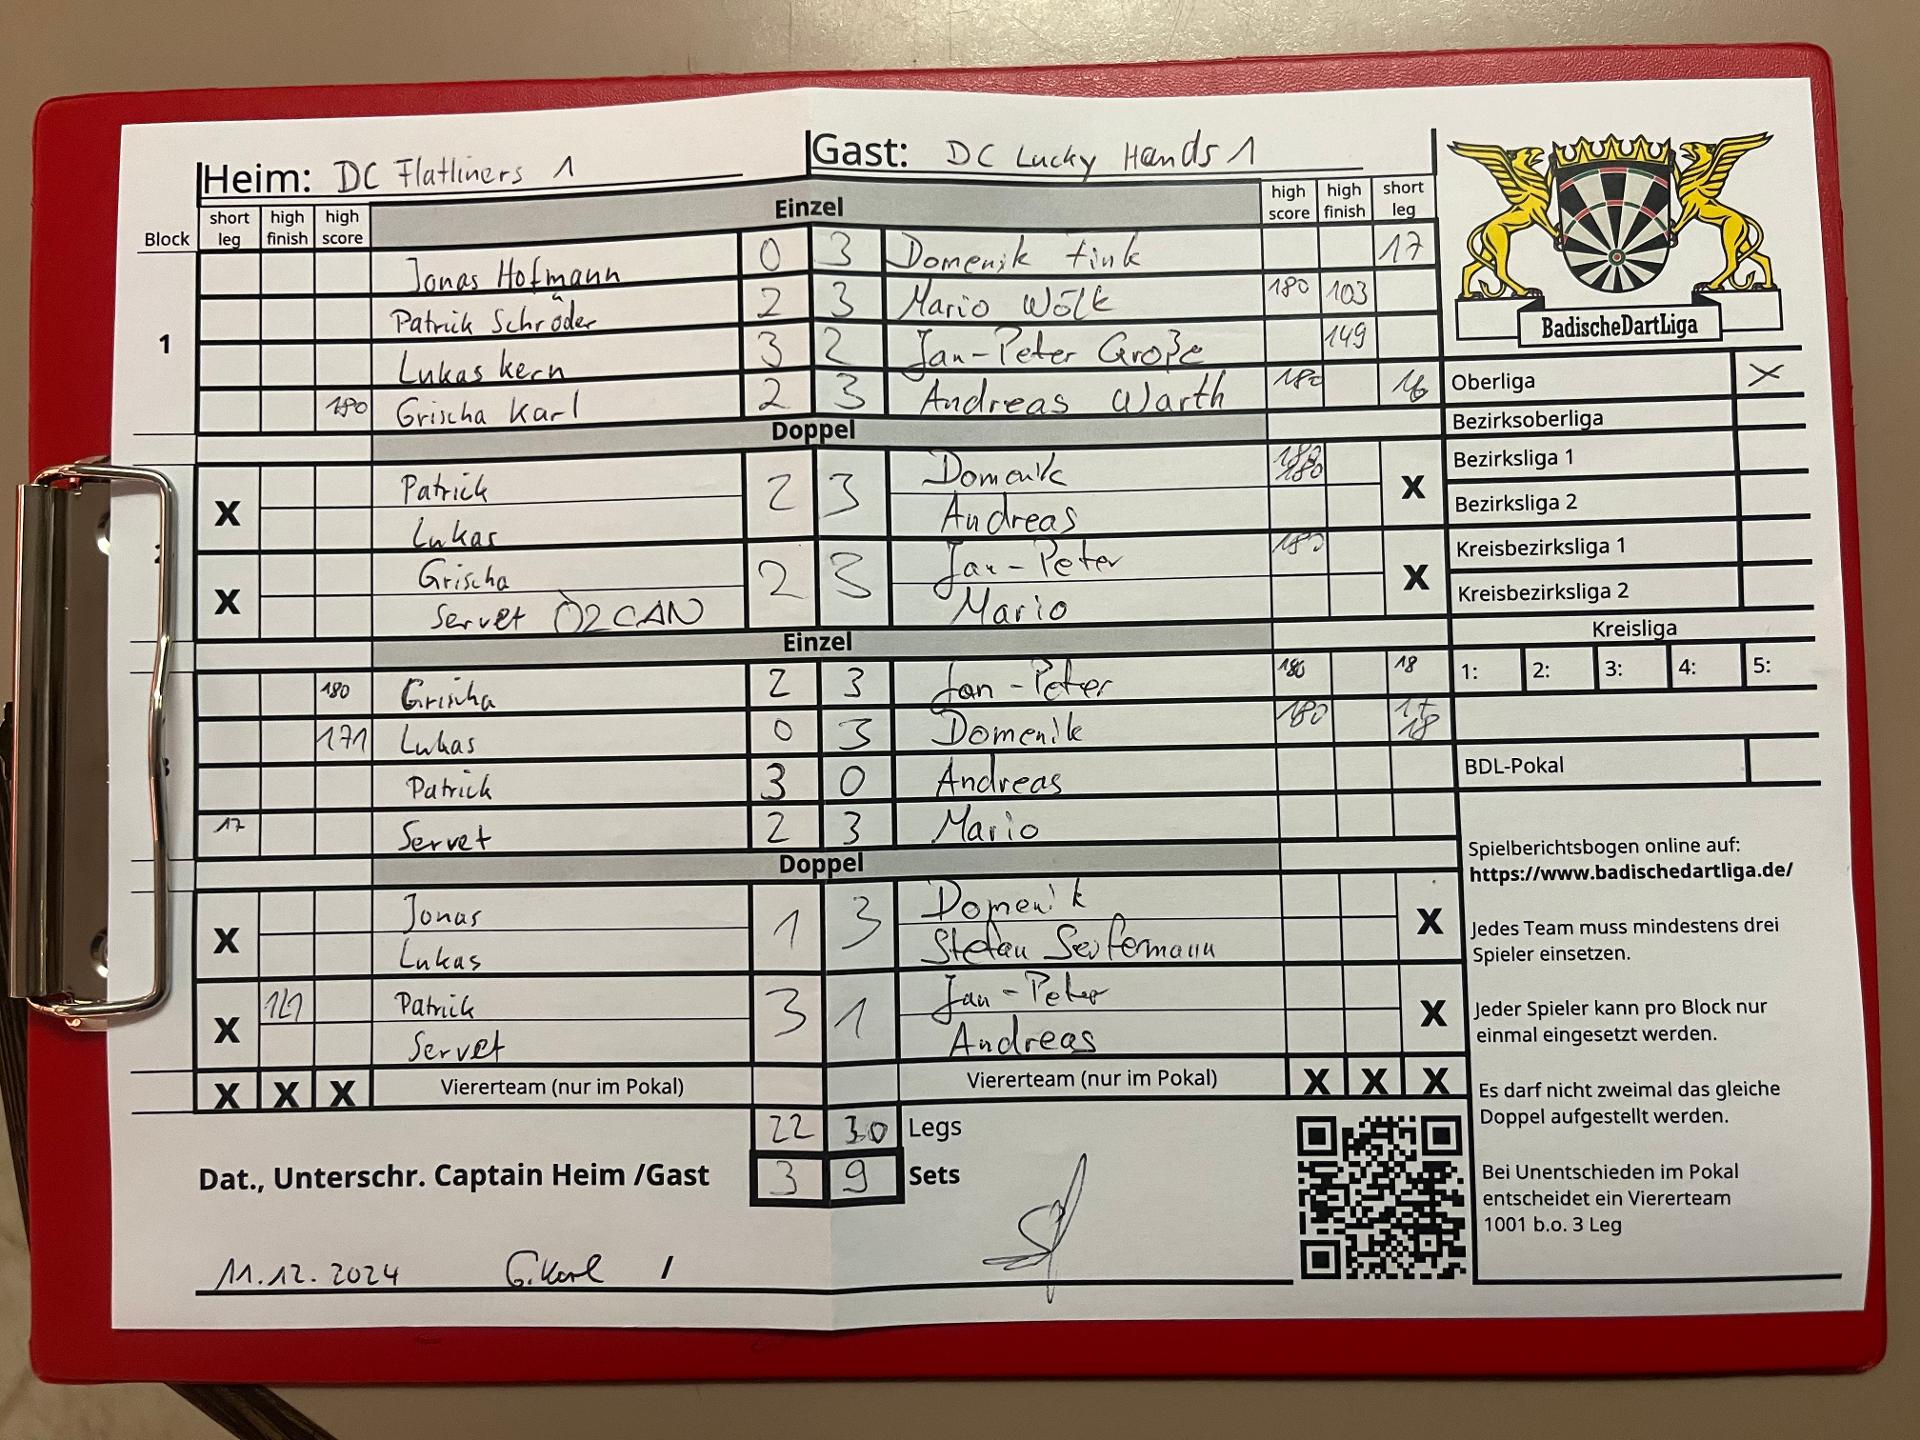 Heim: DC Flatliners 1 Gast: DC Lucky Hands 1
Block short leg high finish high score Einzel high score high finish short leg
1
Jonas Hofmann 0 3 Domenik Fink 17
Patrick Schröder 2 3 Mario Wölk 180 103
Lukas Kern 3 2 Jan-Peter Große 149
180 Grischa Karl 2 3 Andreas Warth 180 16
Doppel
X Patrick 2 3 Domenik 180 180 X
Lukas Andreas
X Grischa 2 3 Jan-Peter 180 X
Servet ÖZCAN Mario
Einzel
180 Grischa 2 3 Jan-Peter 180 18
171 Lukas 0 3 Domenik 180 17 18
Patrick 3 0 Andreas
17 Servet 2 3 Mario
Doppel
X Jonas 1 3 Domenik X
Lukas Stefan Seifermann
X 121 Patrick 3 1 Jan-Peter X
Servet Andreas
X X X Viererteam (nur im Pokal) Viererteam (nur im Pokal) X X X
22 30 Legs
Dat., Unterschr. Captain Heim /Gast 3 9 Sets
11.12.2024 G. Karl /
BadischeDartLiga
Oberliga X
Bezirksoberliga
Bezirksliga 1
Bezirksliga 2
Kreisbezirksliga 1
Kreisbezirksliga 2
Kreisliga
1: 2: 3: 4: 5:
BDL-Pokal
Spielberichtsbogen online auf:
https://www.badischedartliga.de/
Jedes Team muss mindestens drei
Spieler einsetzen.
Jeder Spieler kann pro Block nur
einmal eingesetzt werden.
Es darf nicht zweimal das gleiche
Doppel aufgestellt werden.
Bei Unentschieden im Pokal
entscheidet ein Viererteam
1001 b.o. 3 Leg